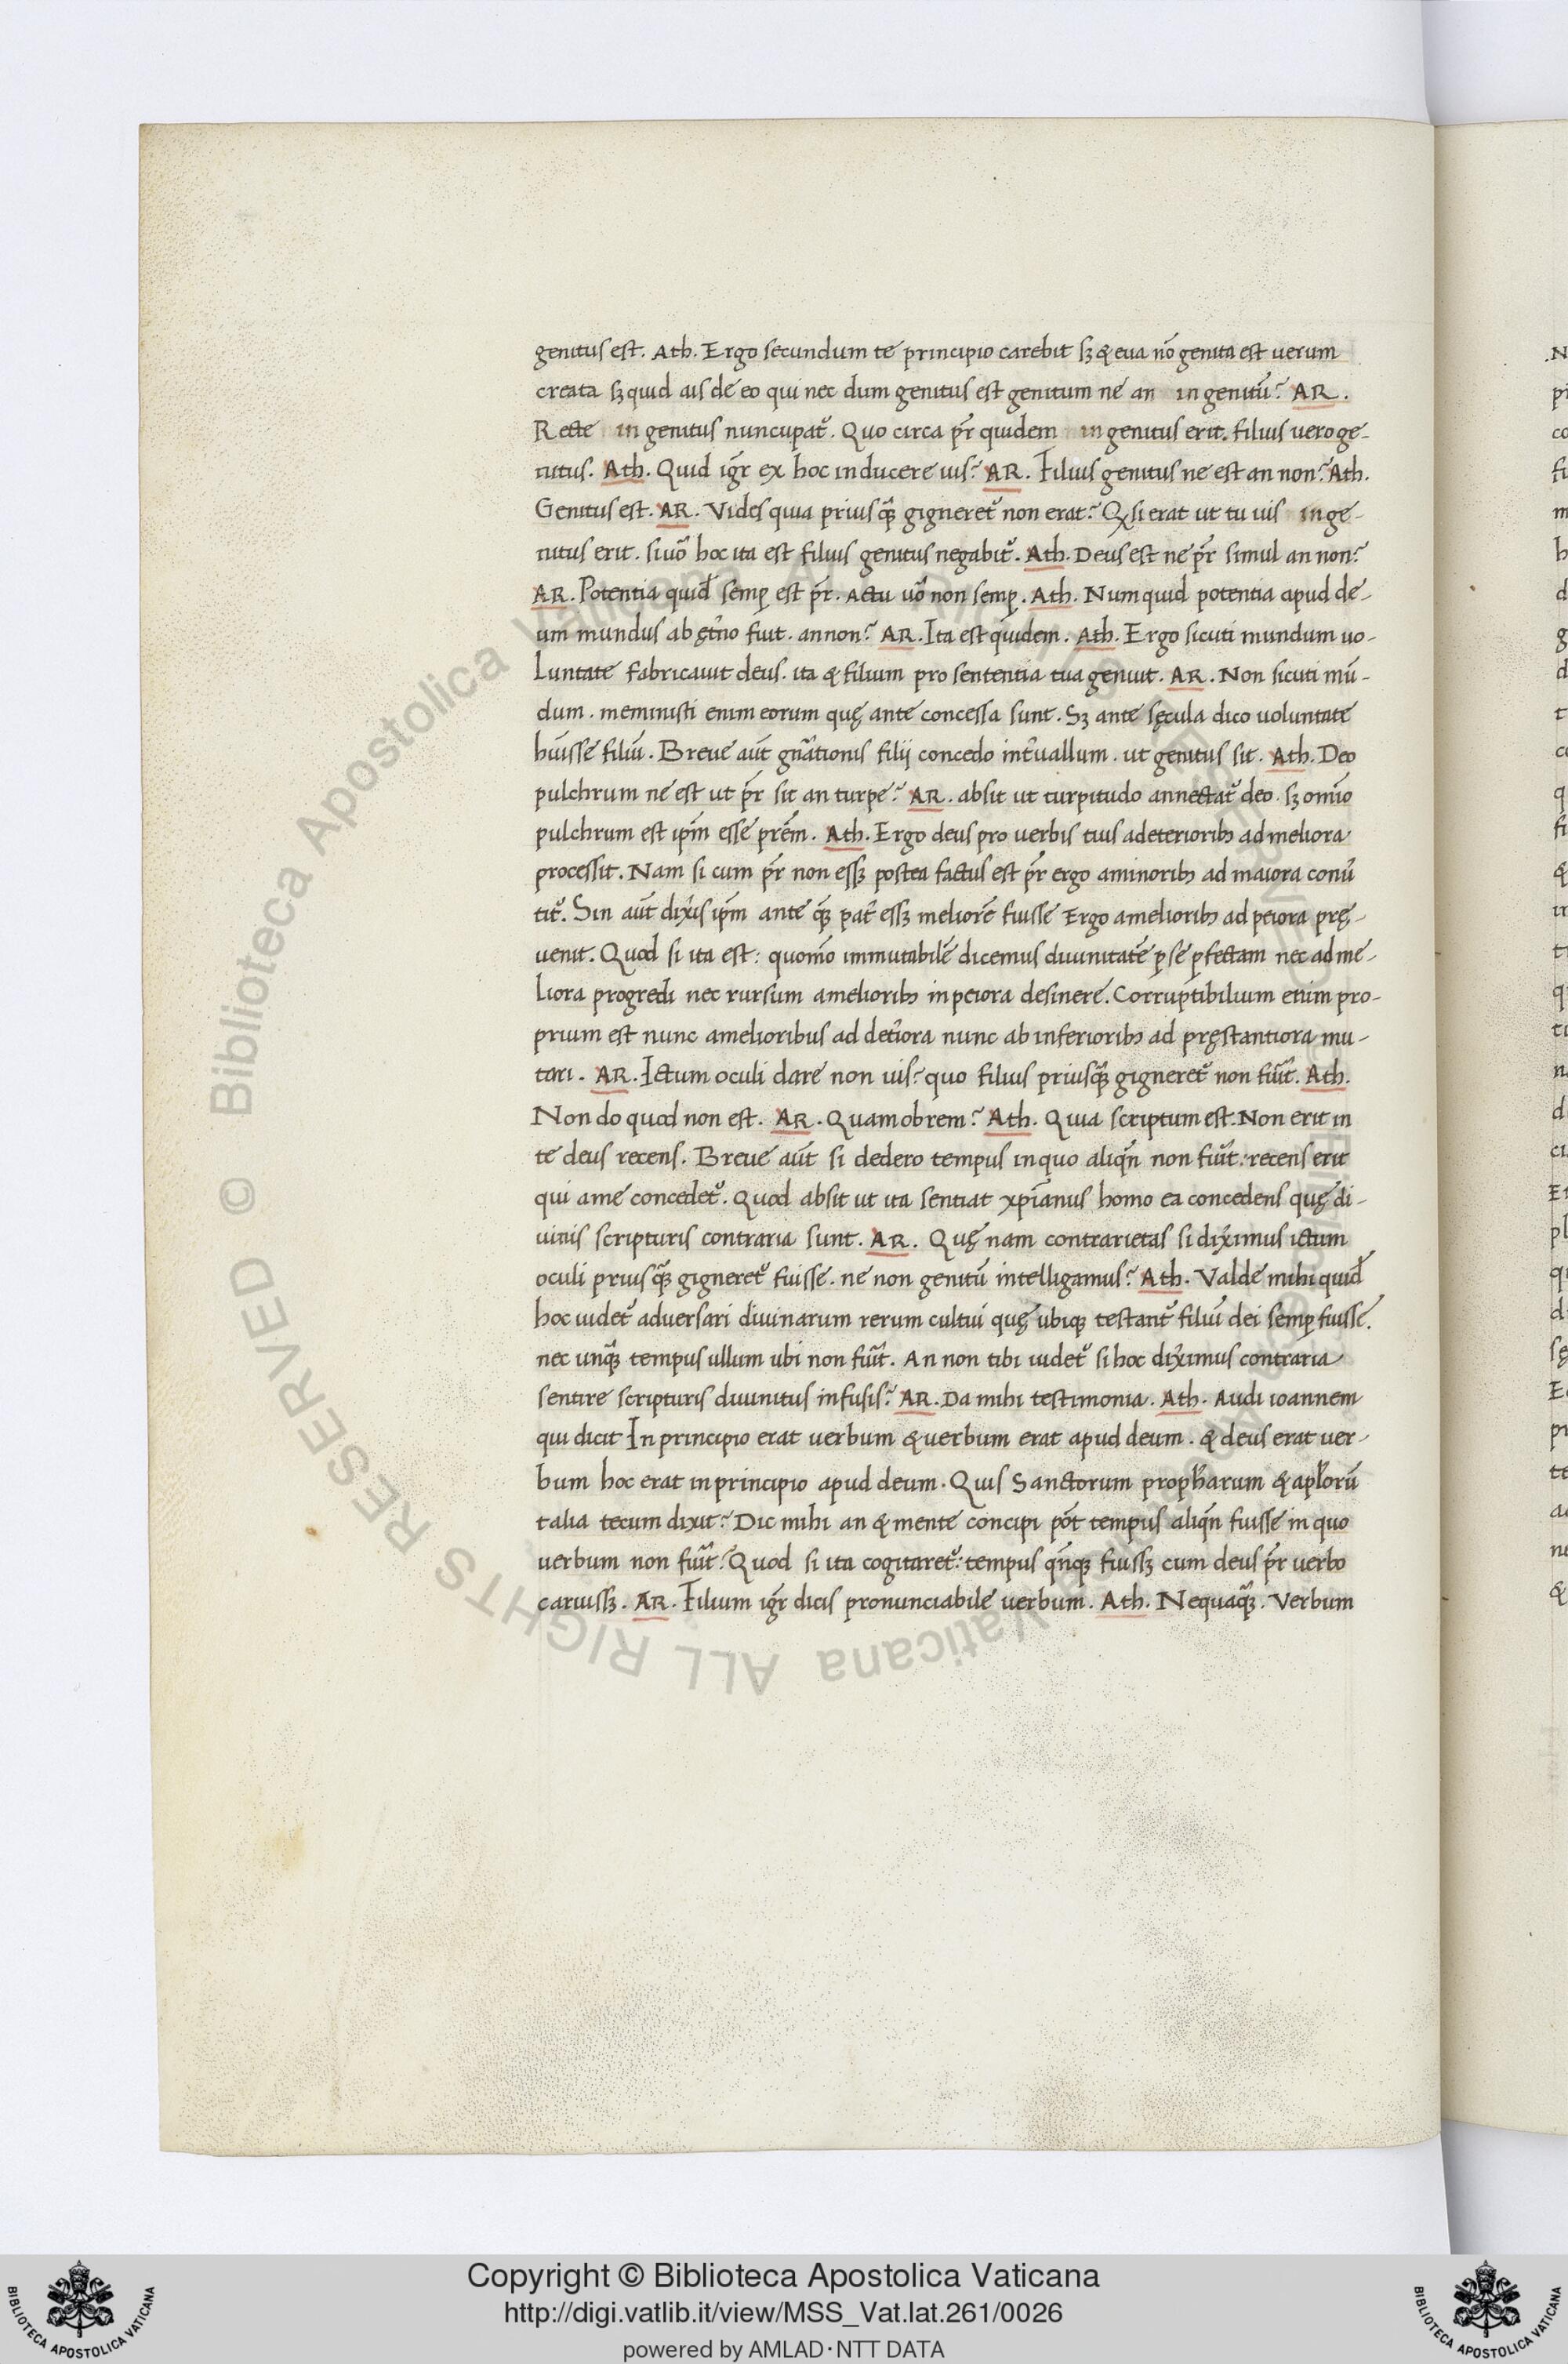 genitus est. Ath. Ergo secundum te principio carebit sꝫ & eua nō genita est uerum
creata sꝫ quid ais de eo qui nec dum genitus est genitum ne an in genitū? AR.
Recte in genitus nuncupat᷑. Quo circa pr̄ quidem in genitus erit. filius uero ge-
nitus. Ath. Quid igr̄ ex hoc inducere uis? AR. Filius genitus ne est an non? Ath.
Genitus est. AR. Vides quia priusqꝫ̄ gigneret᷑ non erat? Qꝫ si erat ut tu uis in ge-
nitus erit. si uō hoc ita est filius genitus negabit᷑. Ath. Deus est ne pr̄ simul an non?
AR. Potentia quid̄ semꝑ est pr̄. Actu uō non semꝑ. Ath. Numquid potentia apud de-
um mundus ab ęt̄no fuit. an non? AR. Ita est quidem. Ath. Ergo sicuti mundum uo-
luntate fabricauit deus. ita & filium pro sententia tua genuit. AR. Non sicuti mū-
dum. meministi enim eorum quę ante concessa sunt. Sꝫ ante sęcula dico uoluntate
huisse filiū. Breue aūt gn̄ationis filij concedo int̄uallum. ut genitus sit. Ath. Deo
pulchrum ne est ut pr̄ sit an turpe? AR. absit ut turpitudo annectat᷑ deo. sꝫ om̄io
pulchrum est ip̄m esse prēm. Ath. Ergo deus pro uerbis tuis a deterioribꝫ ad meliora
processit. Nam si cum pr̄ non essꝫ postea factus est pr̄ ergo a minoribꝫ ad maiora conū
tit᷑. Sin aūt dixis ip̄m ante qꝫ̄ pat̄ essꝫ meliorē fuisse Ergo a melioribꝫ ad peiora prę-
uenit. Quod si ita est: quomō immutabilē dicemus diuinitatē ꝑ se ꝑfectam nec ad me-
liora progredi nec rursum a melioribꝫ in peiora desinere. Corruptibilium enim pro-
prium est nunc a melioribus ad det̄iora nunc ab inferioribꝫ ad pręstantiora mu-
tari. AR. Ictum oculi dare non uis? quo filius priusqꝫ̄ gigneret᷑ non fūit. Ath.
Non do quod non est. AR. Quamobrem? Ath. Quia scriptum est. Non erit in
te deus recens. Breue aūt si dedero tempus in quo aliqn̄ non fūit: recens erit
qui a me concedet᷑. Quod absit ut ita sentiat xp̄ianus homo ea concedens quę di-
uinis scripturis contraria sunt. AR. Quę nam contrarietas si diximus ictum
oculi priusqꝫ̄ gigneret᷑ fuisse. ne non genitū intelligamus? Ath. Valde mihi quid̄
hoc uidet᷑ aduersari diuinarum rerum cultui quę ubiqꝫ testant᷑ filiū dei semꝑ fuisse.
nec unqꝫ̄ tempus ullum ubi non fūit. An non tibi uidet᷑ si hoc diximus contraria
sentire scripturis diuinitus infusis? AR. Da mihi testimonia. Ath. Audi ioannem
qui dicit In principio erat uerbum & uerbum erat apud deum. & deus erat uer-
bum hoc erat in principio apud deum. Quis Sanctorum proph̄arum & apl̄orū
talia tecum dixit? Dic mihi an & mente concipi pōt tempus aliqn̄ fuisse in quo
uerbum non fūit? Quod si ita cogitaret᷑: tempus qn̄qꝫ fuissꝫ cum deus pr̄ uerbo
caruissꝫ. AR. Filium igr̄ dicis pronunciabile uerbum. Ath. Nequaqꝫ̄. Verbum
© Biblioteca Apostolica Vaticana ALL RIGHTS RESERVED
Copyright © Biblioteca Apostolica Vaticana
http://digi.vatlib.it/view/MSS_Vat.lat.261/0026
powered by AMLAD·NTT DATA
BIBLIOTECA APOSTOLICA VATICANA
BIBLIOTECA APOSTOLICA VATICANA